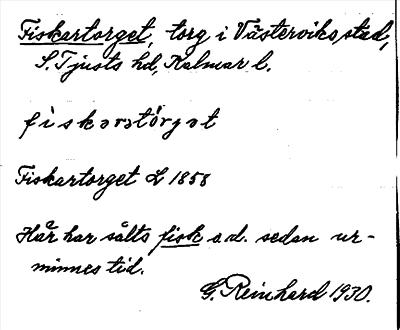 Fiskartorget, torg i Västerviks stad,
S. Tjusts hd, Kalmar l.
fìskarató̀rgat
Fiskartorget L 1858
Här har sålts fisk o.d. sedan ur-
minnes tid.
G. Reinhard 1930.